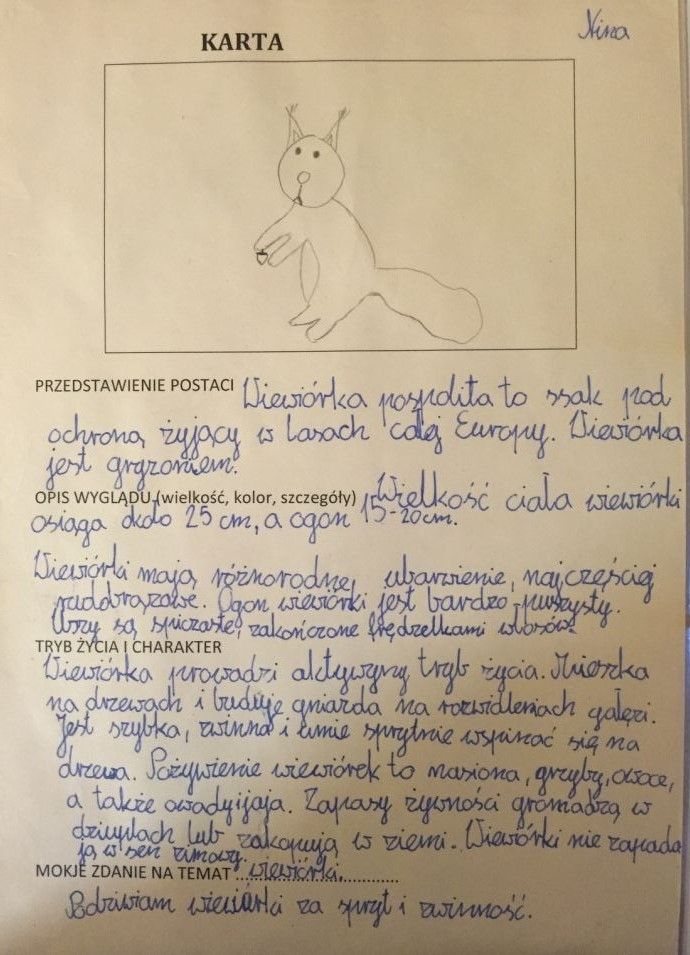 Nina
KARTA
PRZEDSTAWIENIE POSTACI Wiewiórka pospolita to ssak pod
ochroną żyjący w lasach całej Europy. Wiewiórka
jest gryzoniem.
OPIS WYGLĄDU (wielkość, kolor, szczegóły) Wielkość ciała wiewiórki
osiąga około 25 cm, a ogon 15-20cm.
Wiewiórki mają różnorodne ubarwienie, najczęściej
rudobrązowe. Ogon wiewiórki jest bardzo puszysty.
Uszy są spiczaste, zakończone frędzelkami włosów.
TRYB ŻYCIA I CHARAKTER
Wiewiórka prowadzi aktywyny tryb życia. Mieszka
na drzewach i buduje gniazda na rozwidleniach gałęzi.
Jest szybka, zwinna i umie sprytnie wspinać się na
drzewa. Pożywienie wiewiórek to nasiona, grzyby, owoce,
a także owady i jaja. Zapasy żywności gromadzą w
dziuplach lub zakopują w ziemi. Wiewiórki nie zapada
ją w sen zimowy.
MOKJE ZDANIE NA TEMAT wiewiórki.
Podziwiam wiewiórki za spryt i zwinność.